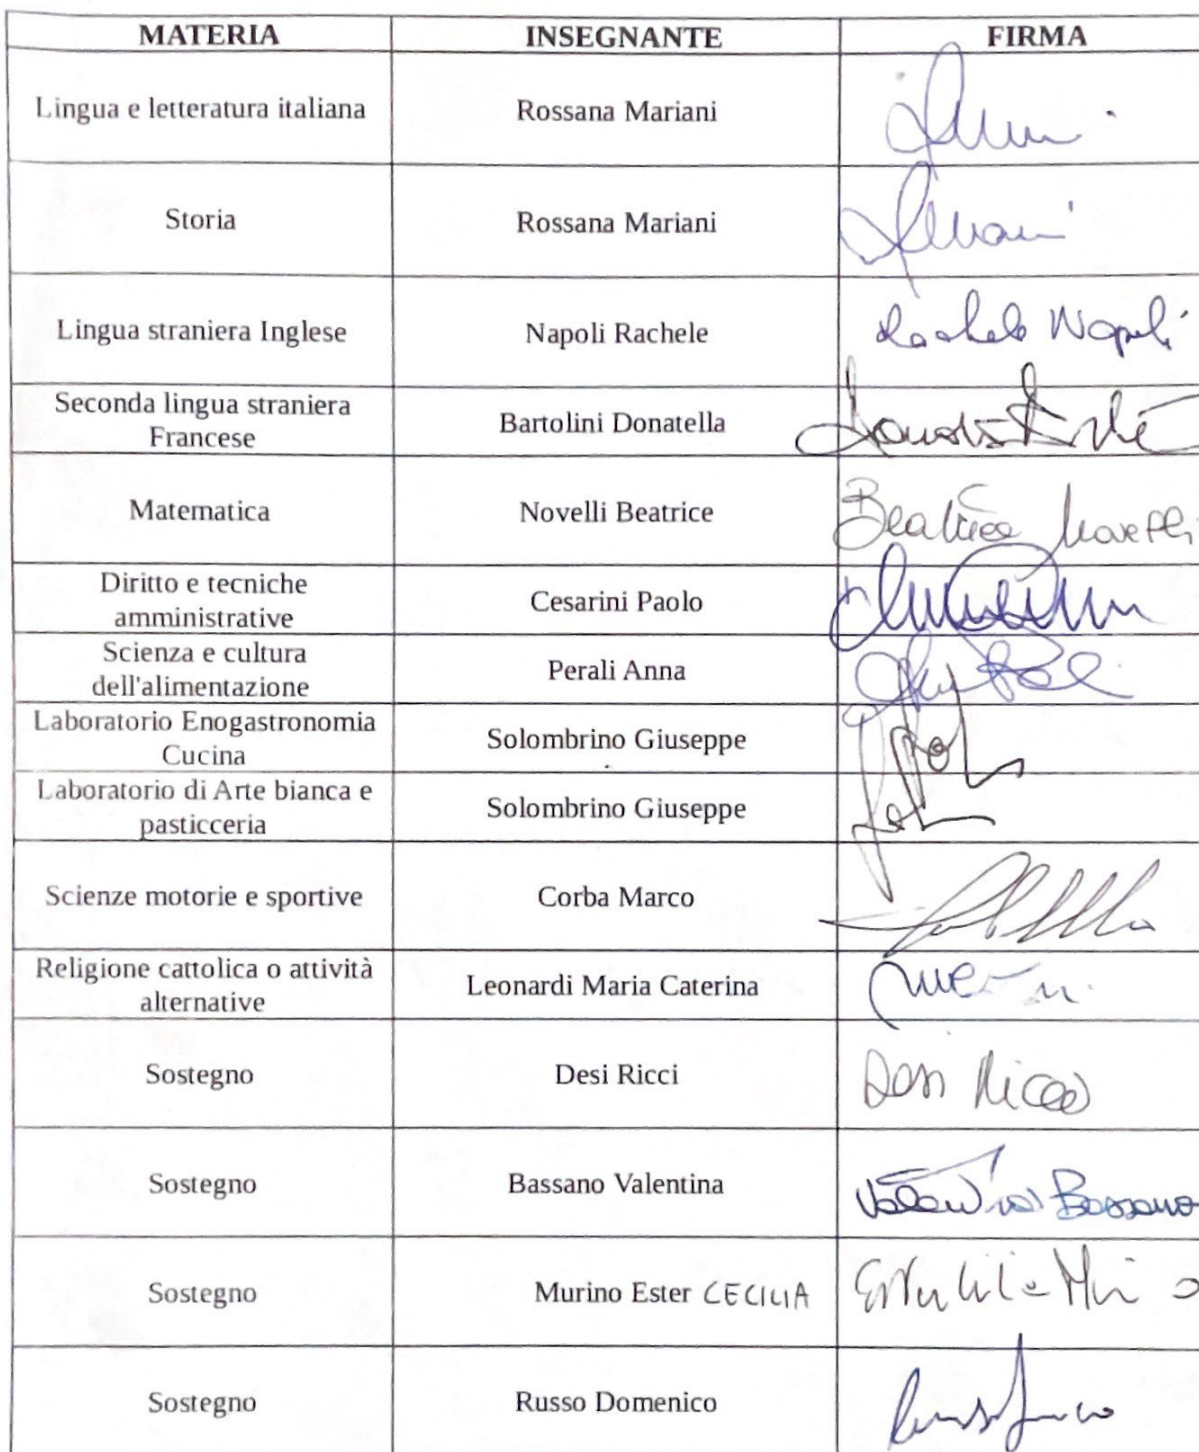 MATERIA INSEGNANTE FIRMA
Lingua e letteratura italiana Rossana Mariani
Storia Rossana Mariani
Lingua straniera Inglese Napoli Rachele Rachele Napoli
Seconda lingua straniera
Francese Bartolini Donatella
Matematica Novelli Beatrice Beatrice Novelli
Diritto e tecniche
amministrative Cesarini Paolo
Scienza e cultura
dell'alimentazione Perali Anna
Laboratorio Enogastronomia
Cucina Solombrino Giuseppe
Laboratorio di Arte bianca e
pasticceria Solombrino Giuseppe
Scienze motorie e sportive Corba Marco
Religione cattolica o attività
alternative Leonardi Maria Caterina
Sostegno Desi Ricci Desi Ricci
Sostegno Bassano Valentina Valentina Bassano
Sostegno Murino Ester CECILIA
Sostegno Russo Domenico